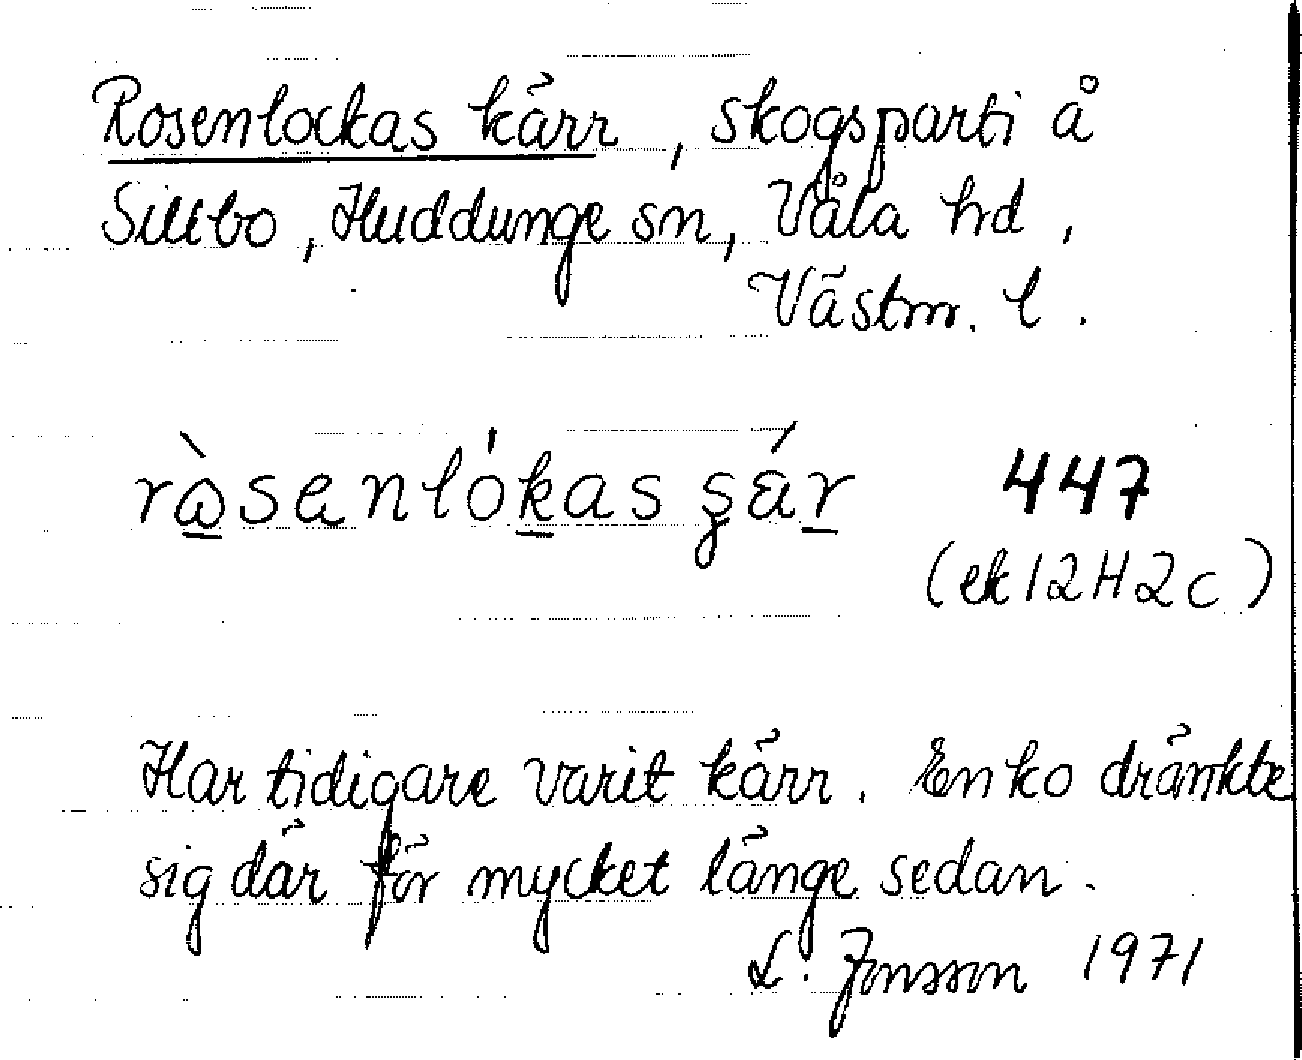 Rosenlockas kärr, skogsparti å
Sillbo, Huddunge sn, Våla hd,
Västm. l.
447
(ek 12H2c)
Har tidigare varit kärr. En ko dränkte
sig där för mycket länge sedan.
L. Jonsson 1971